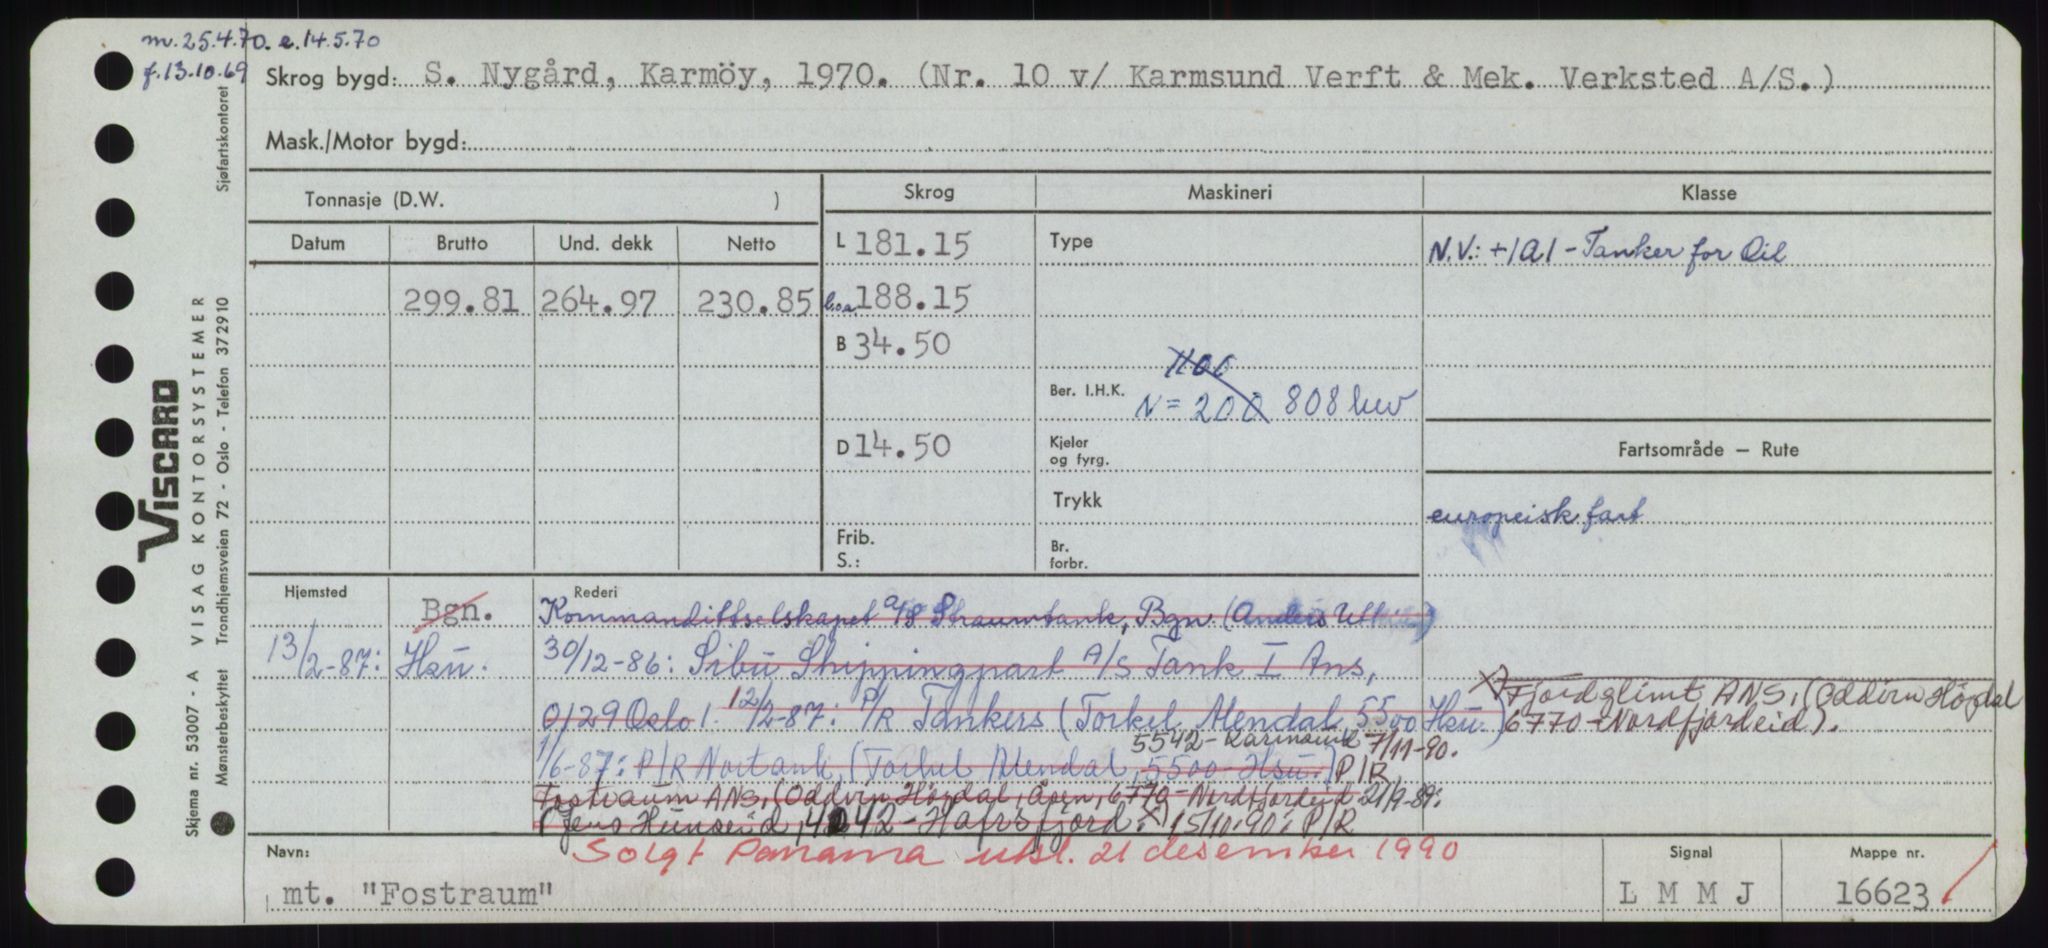 m. 25.4.70. e. 14.5.70
f. 13.10.69
Skrog bygd: S. Nygård, Karmöy, 1970. (Nr. 10 v/ Karmsund Verft & Mek. Verksted A/S.)
Mask./Motor bygd:
Tonnasje (D.W. )
Skrog
Maskineri
Klasse
Datum
Brutto
Und. dekk
Netto
L 181.15
Type
N.V.: +1A1 - Tanker for Oil
299.81
264.97
230.85
l.o.a. 188.15
B 34.50
1100
Ber. I.H.K. N = 200 808 hkv
D 14.50
Kjeler
og fyrg.
Fartsområde – Rute
Trykk
europeisk fart
Frib.
S.:
Br.
forbr.
Hjemsted
Bgn.
Rederi
Kommandittselskapet A/S Straumtank, Bgn. (Anders
13/2-87: Hsu.
30/12-86: Sibu Shippingpart A/S Tank I Ans,
0129 Oslo 1. 12/2-87: P/R Tankers (Torkel Alendal 5500 Hsu.)
x) Fjordglimt ANS, (Oddvin Högdal
6770-Nordfjordeid).
5542-Karmsund 7/11-90.
1/6-87: P/R Nortank, (Torkel Alendal, 5500-Hsu.) P/R
Fostraum ANS, (Oddvin Högdal, Åsen, 6770-Nordfjordeid 21/9-89:
(Jens Hunseid, 4042-Hafrsfjord. x) 15/10-90: P/R
Solgt Panama utsl. 21 desember 1990
Navn:
mt. "Fostraum"
Signal
L M M J
Mappe nr.
16623
Sjøfartskontoret
VISCARD
VISAG KONTORSYSTEMER
Trondhjemsveien 72 - Oslo - Telefon 372910
Skjema nr. 53007 - A
Mønsterbeskyttet